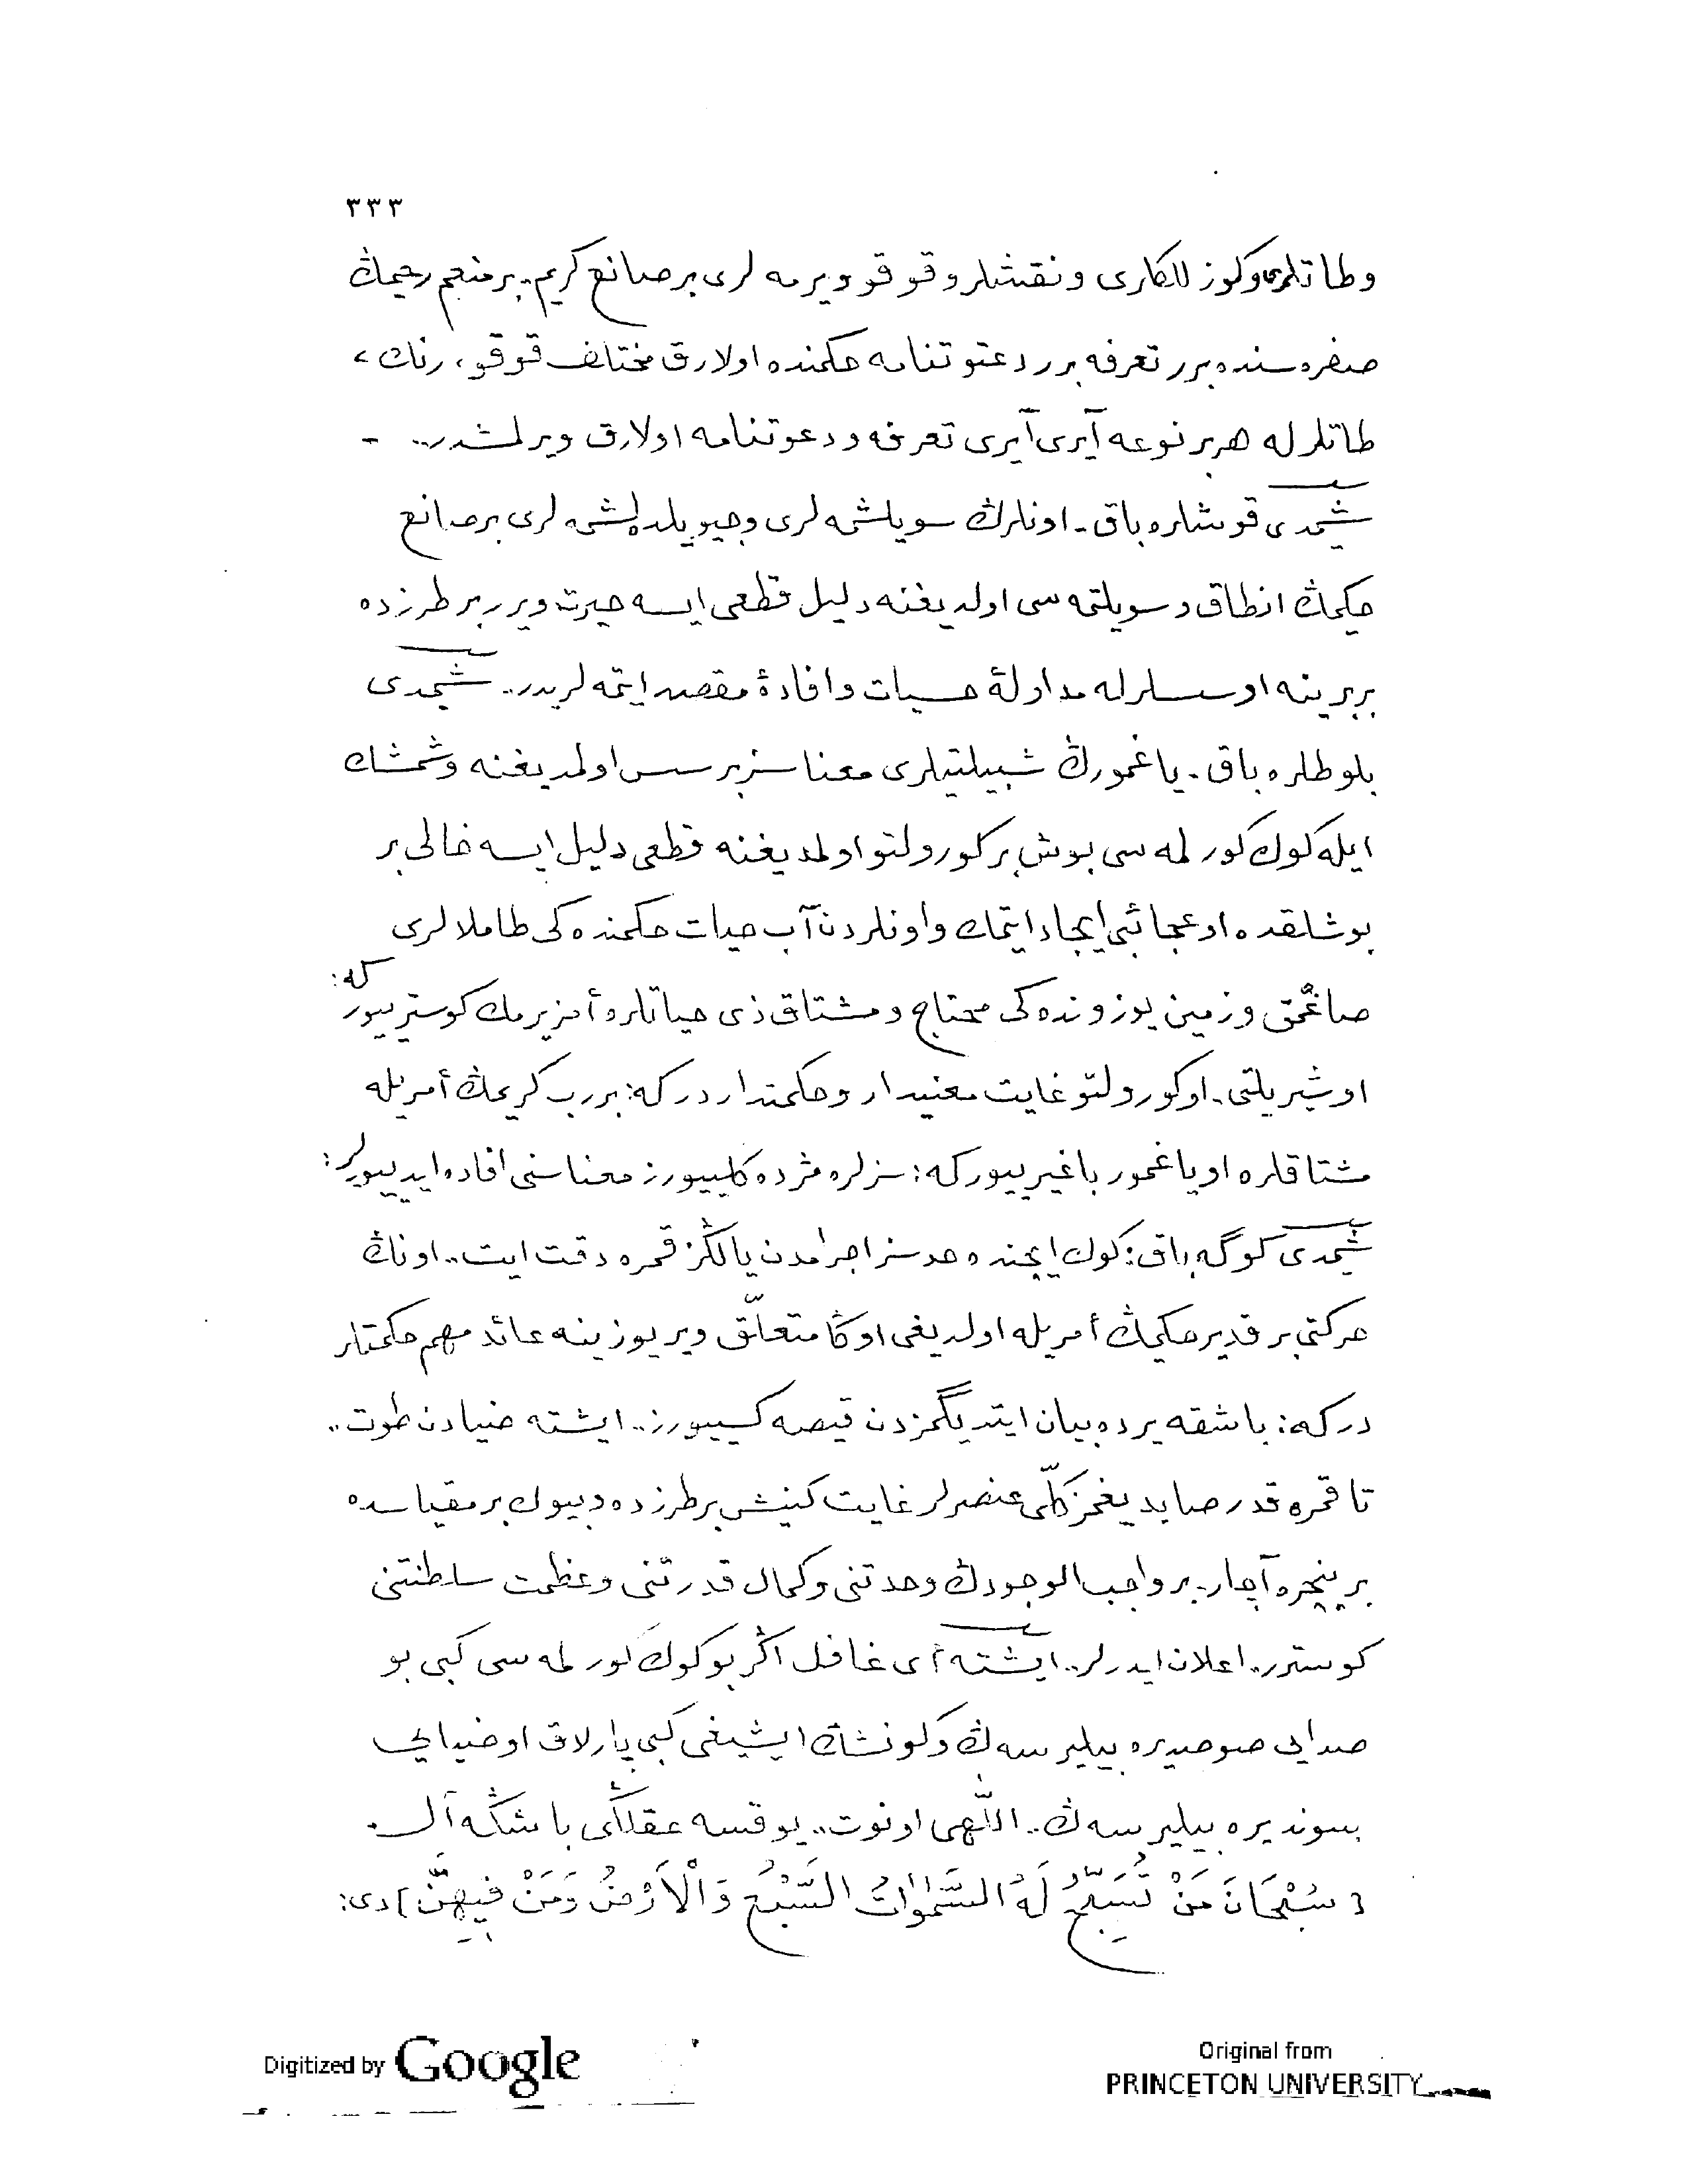 ٣٣٣
وطاتلرى وكوزللكلرى ونقشلر وقوقو ويرمه لرى بر صانع كريم، بر منعم رحيمڭ
صفره سنده برر تعرفه برر دعوتنامه حكمنده اولارق مختلف قوقو، رنك،
طاتلرله هربر نوعه آيرى آيرى تعرفه و دعوتنامه اولارق ويرلمشدر..
شيمدى قوشلره باق. اونلرڭ سويلشمه لرى وجيويلده شمه لرى بر صانع
حكيمڭ انطاق و سويلتمه سى اولديغنه دليل قطعى ايسه حيرت ويرر بر طرزده
بربرينه او سسلرله مداولۀ حسيات وافادۀ مقصد ايتمه لريدر.. شيمدى
بلوطلره باق. ياغمورڭ شبيلتيلرى معناسز بر سس اولمديغنه وشمشك
ايله كوك كورلمه سى بوش بر كورولتو اولمديغنه قطعى دليل ايسه خالى بر
بوشلقده او عجائبى ايجاد ايتمك واونلردن آب حيات حكمنده كى طاملالرى
صاغمق وزمين يوزونده كى محتاج و مشتاق ذى حياتلره أمزيرمك كوستريبيور كه:
او شيريلتى. او كورولتو غايت معنيدار وحكمتداردر كه: بر رب كريمڭ أمريله
مشتاقلره او ياغمور باغيرييور كه: سزلره مژده كلييورز معناسنى افاده ايدييورلر:
شيمدى كوگه باق: كوك ايچنده حدسز اجرامدن يالڭز قمره دقت ايت.. اونڭ
حركتى بر قدير حكيمڭ أمريله اولديغى اوڭا متعلّق وير يوزينه عائد مهم حكمتلر
در كه: باشقه يرده بيان ايتديگمزدن قيصه كسييورز.. ايشته ضيادن طوت..
تا قمره قدر صايديغمز كلّى عنصرلر غايت كنيش بر طرزده وبيوك بر مقياسده
بر پنجره آچار. بر واجب الوجودڭ وحدتنى وكمال قدرتنى وعظمت سلطنتنى
كوسترر.. اعلان ايدرلر.. ايشته أى غافل اگر بو كوك كورلمه سى كبى بو
صدايى صوصديره بيليرسه ڭ وكونشڭ ايشيغى كبى پارلاق او ضيايى
سوندیره بيليرسه ڭ.. اللّٰهى اونوت.. يوقسه عقلڭى باشڭه آل.
[سُبْحَانَ مَنْ تُسَبِّحُ لَهُ السَّمٰوَاتُ السَّبْعُ وَالْاَرْضُ وَمَنْ فِيهِنَّ] دى:
Digitized by Google
Original from
PRINCETON UNIVERSITY